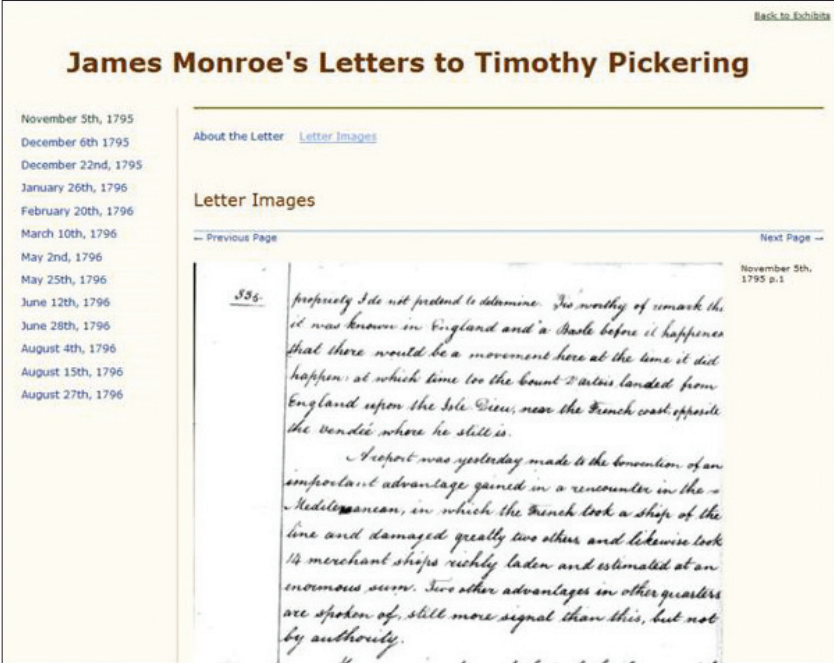 Back to Exhibits
James Monroe's Letters to Timothy Pickering
November 5th, 1795
December 6th 1795
December 22nd, 1795
January 26th, 1796
February 20th, 1796
March 10th, 1796
May 2nd, 1796
May 25th, 1796
June 12th, 1796
June 28th, 1796
August 4th, 1796
August 15th, 1796
August 27th, 1796
About the Letter Letter Images
Letter Images
← Previous Page Next Page →
November 5th,
1795 p.1
propriety I do not pretend to determine. Tis worthy of remark
it was known in England and a Basle before it
that there would be a movement here at the time it did
happen: at which time too the Count D'artois landed from
England upon the Isle Dieu, near the French coast opposite
the Vendeé where he still is.
A report was yesterday made to the Convention of an
important advantage gained in a rencounter in the
Mediterranean, in which the French took a ship of the
line and damaged greatly two others and likewise took
14 merchant ships richly laden and estimated at an
enormous sum. Two other advantages in other quarters
are spoken of, still more signal than this, but not
by authority.